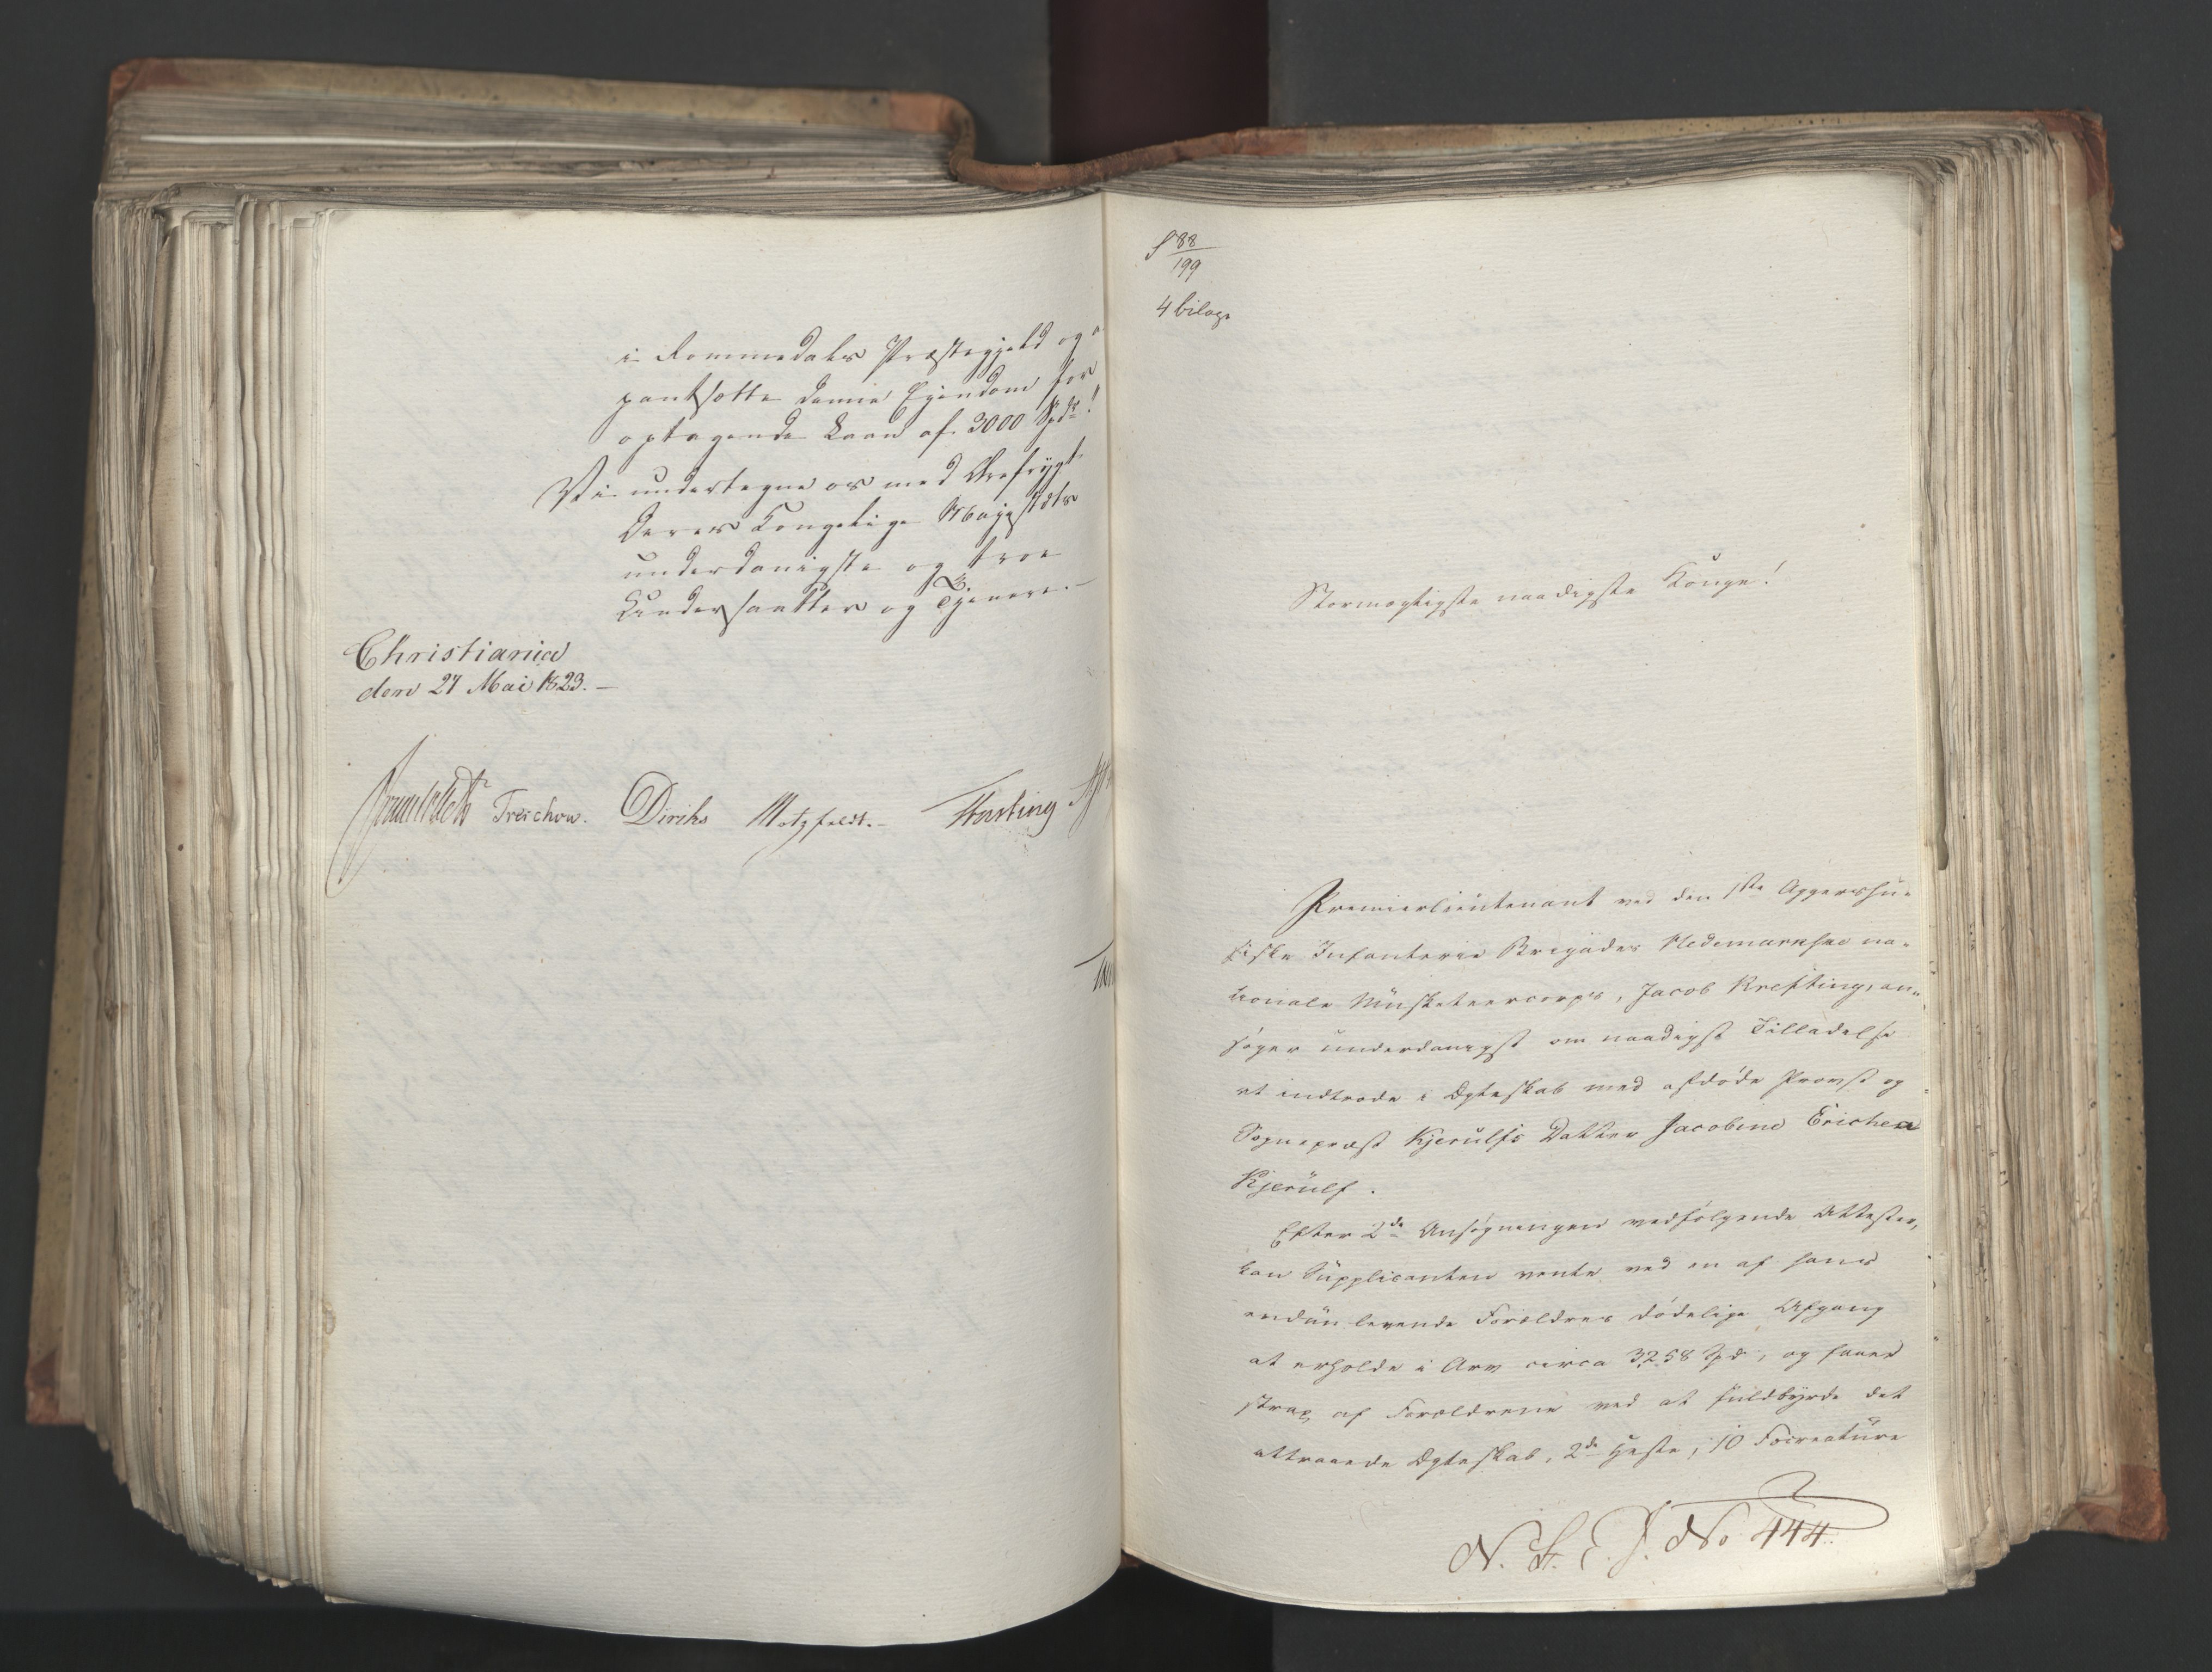 i Rommedals Præstegjeld og
pantsætte denne Ejendom for
optagende Laan af 3000 Spdr!
Vi undertegne os med Ærefrygt
Deres Kongelige Majestæts
underdanigste og troe
Undersaatter og Tjenere.-
Christiania
den 27 Mai 1823.-
Treschow. Diriks Motzfeldt.- Hasting
S 88
199
4 bilage
Stormægtigste naadigste Konge!
Premierlieutenant ved den 1ste Aggershu-
siske Infanterie Brigades Hedemarkske na-
tionale Musketeercorps, Jacob Krefting, an-
søger underdanigst om naadigst Tilladelse
at indtræde i Ægteskab med afdøde Provst og
Sognepræst Kjerulfs Datter Jacobine Erichea
Kjerulf.
Efter 2de Ansøgningen vedfølgende Attester,
kan Supplicanten vente ved en af hans
endnu levende Forældres dødelige Afgang
at erholde i Arv circa 3258 Spd, og faaer
strax af Forældrene ved at fuldbyrde det
attraaede Ægteskab, 2de Heste, 10 Fæcreature
N. St. E. J. No 444.